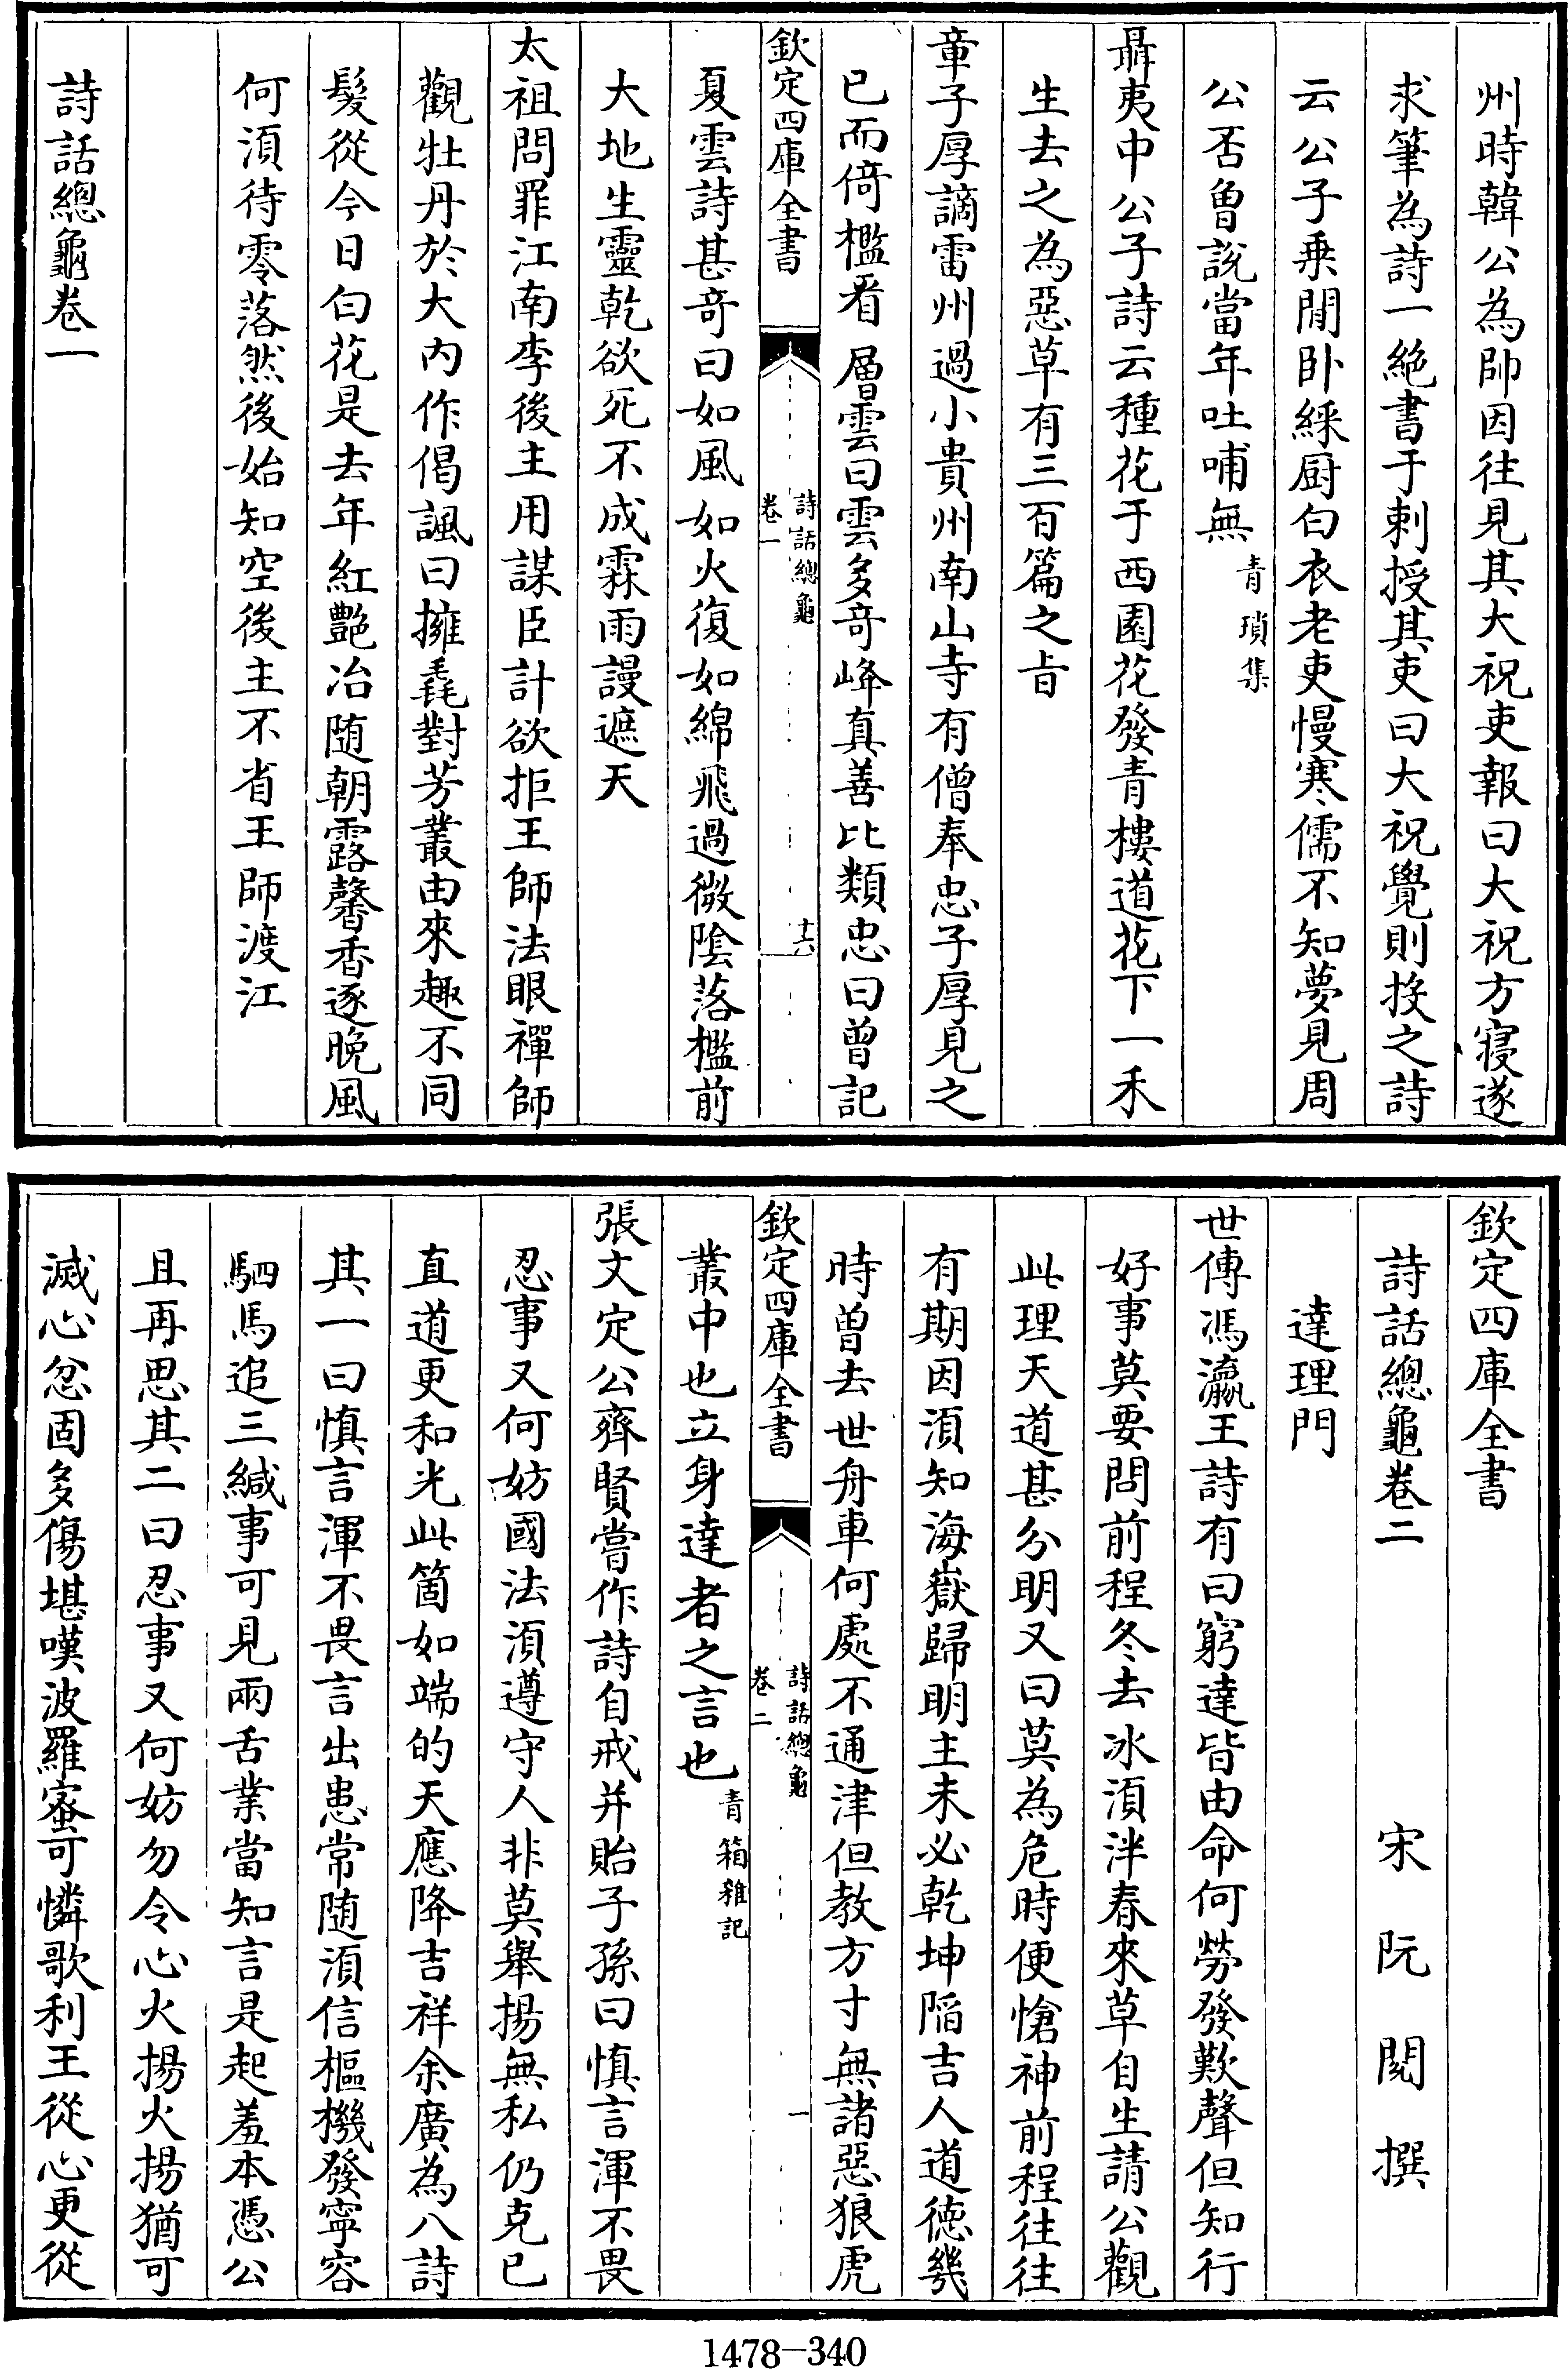 州時韓公為帥因往見其大祝吏報曰大祝方寢遂
求筆為詩一絶書于刺授其吏曰大祝覺則投之詩
云公子乗閒卧綵厨白衣老吏慢寒儒不知夢見周
公否曽說當年吐哺無青瑣集
聶夷中公子詩云種花于西園花發青樓道花下一禾
生去之為惡草有三百篇之旨
章子厚謫雷州過小貴州南山寺有僧奉忠子厚見之
已而倚檻看層雲曰雲多奇峰真善比類忠曰曽記
欽定四庫全書
詩話總龜
卷一
十六
夏雲詩甚奇曰如風如火復如綿飛過微隂落檻前
大地生靈乾欲死不成霖雨謾遮天
太祖問罪江南李後主用謀臣計欲拒王師法眼禪師
觀牡丹於大内作偈諷曰擁毳對芳叢由來趣不同
髮從今日白花是去年紅艷冶随朝露馨香逐晚風
何湏待零落然後始知空後主不省王師渡江
詩話總龜卷一
欽定四庫全書
詩話總龜卷二
宋阮閱撰
達理門
世傳馮瀛王詩有曰窮達皆由命何勞發歎聲但知行
好事莫要問前程冬去冰湏泮春來草自生請公觀
此理天道甚分明又曰莫為危時便愴神前程往往
有期因湏知海嶽歸明主未必乾坤陷吉人道徳幾
時曽去世舟車何處不通津但教方寸無諸惡狼虎
欽定四庫全書
詩話總龜
卷二
一
叢中也立身達者之言也青箱雜記
張文定公齊賢嘗作詩自戒并貽子孫曰慎言渾不畏
忍事又何妨國法湏遵守人非莫舉揚無私仍克已
直道更和光此箇如端的天應降吉祥余廣為八詩
其一曰慎言渾不畏言出患常随湏信樞機發寧容
駟馬追三緘事可見兩舌業當知言是起羞本憑公
且再思其二曰忍事又何妨勿令心火揚火揚猶可
滅心忿固多傷堪嘆波羅蜜可憐歌利王從心更從
1478-340